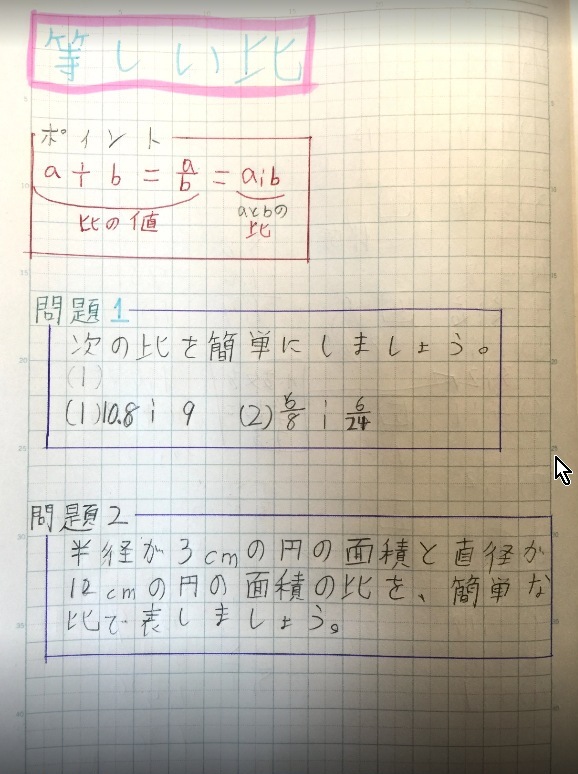 等しい比
ポイント
a ÷ b = a/b = a:b
比の値
aとbの
比
問題1
次の比を簡単にしましょう。
(1)
(1)10.8 : 9 (2) /8 : 6/24
問題2
半径が3cmの円の面積と直径が
12cmの円の面積の比を、簡単な
比で表しましょう。